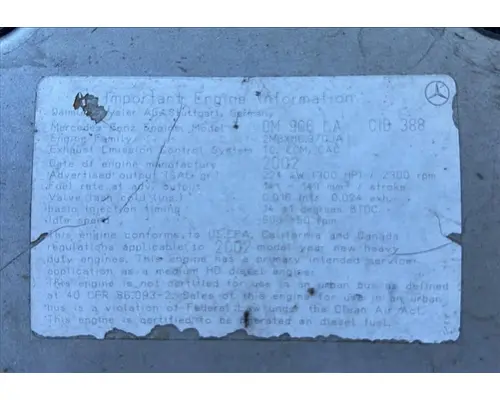 Important Engine Information
Daimler Chrysler AG Stuttgart, Germany
Mercedes Benz Engine Model OM 906 LA CID 388
Engine Family
Exhaust Emission Control System TC, ECM, CAC
Date of engine manufacture 2002
Advertised output (SAE) gr. 224 kW (300 HP) / 2300 rpm
Fuel rate at adv. output mm³ / stroke
Valve lash cold (in.) 0.016 int. 0.024 exh.
basic injection timing degrees BTDC
Idle speed rpm
This engine conforms to US EPA, California and Canada
regulations applicable in 2002 model year new heavy
duty engines. This engine has a primary intended service
application as a medium HD diesel engine.
This engine is not certified for use in an urban bus as defined
at 40 CFR 86.093-2. Sales of this engine for use in an urban
bus is a violation of Federal Law under the Clean Air Act.
This engine is certified to be operated on diesel fuel.